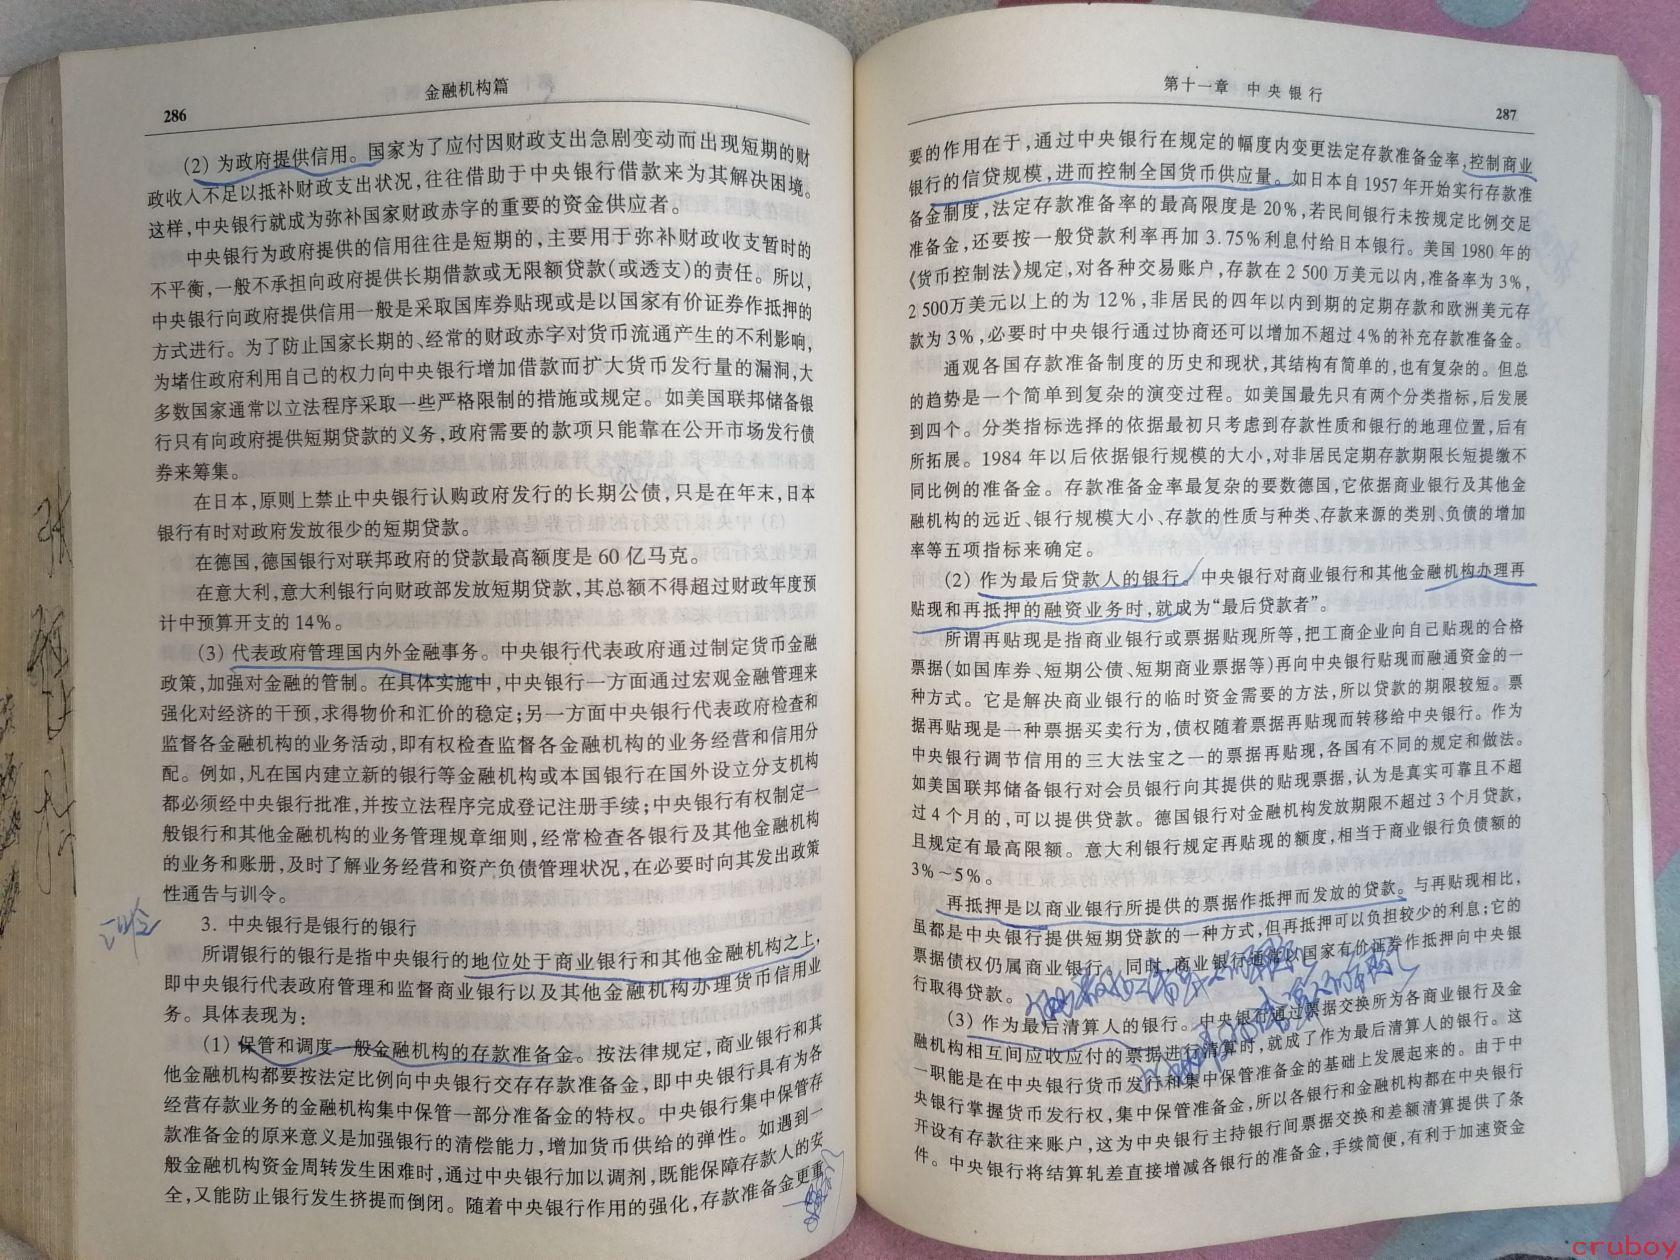 286
金融机构篇
(2) 为政府提供信用。国家为了应付因财政支出急剧变动而出现短期的财
政收入不足以抵补财政支出状况,往往借助于中央银行借款来为其解决困境。
这样,中央银行就成为弥补国家财政赤字的重要的资金供应者。
中央银行为政府提供的信用往往是短期的,主要用于弥补财政收支暂时的
不平衡,一般不承担向政府提供长期借款或无限额贷款(或透支)的责任。所以,
中央银行向政府提供信用一般是采取国库券贴现或是以国家有价证券作抵押的
方式进行。为了防止国家长期的、经常的财政赤字对货币流通产生的不利影响,
为堵住政府利用自己的权力向中央银行增加借款而扩大货币发行量的漏洞,大
多数国家通常以立法程序采取一些严格限制的措施或规定。如美国联邦储备银
行只有向政府提供短期贷款的义务,政府需要的款项只能靠在公开市场发行债
券来筹集。
在日本,原则上禁止中央银行认购政府发行的长期公债,只是在年末,日本
银行有时对政府发放很少的短期贷款。
在德国,德国银行对联邦政府的贷款最高额度是 60 亿马克。
在意大利,意大利银行向财政部发放短期贷款,其总额不得超过财政年度预
计中预算开支的 14%。
(3) 代表政府管理国内外金融事务。中央银行代表政府通过制定货币金融
政策,加强对金融的管制。在具体实施中,中央银行一方面通过宏观金融管理来
强化对经济的干预,求得物价和汇价的稳定;另一方面中央银行代表政府检查和
监督各金融机构的业务活动,即有权检查监督各金融机构的业务经营和信用分
配。例如,凡在国内建立新的银行等金融机构或本国银行在国外设立分支机构
都必须经中央银行批准,并按立法程序完成登记注册手续;中央银行有权制定一
般银行和其他金融机构的业务管理规章细则,经常检查各银行及其他金融机构
的业务和账册,及时了解业务经营和资产负债管理状况,在必要时向其发出政策
性通告与训令。
3. 中央银行是银行的银行
所谓银行的银行是指中央银行的地位处于商业银行和其他金融机构之上,
即中央银行代表政府管理和监督商业银行以及其他金融机构办理货币信用业
务。具体表现为:
(1) 保管和调度一般金融机构的存款准备金。按法律规定,商业银行和其
他金融机构都要按法定比例向中央银行交存存款准备金,即中央银行具有为各
经营存款业务的金融机构集中保管一部分准备金的特权。中央银行集中保管存
款准备金的原来意义是加强银行的清偿能力,增加货币供给的弹性。如遇到一
般金融机构资金周转发生困难时,通过中央银行加以调剂,既能保障存款人的安
全,又能防止银行发生挤提而倒闭。随着中央银行作用的强化,存款准备金更重
第十一章 中央银行
287
要的作用在于,通过中央银行在规定的幅度内变更法定存款准备金率,控制商业
银行的信贷规模,进而控制全国货币供应量。如日本自 1957 年开始实行存款准
备金制度,法定存款准备率的最高限度是 20%,若民间银行未按规定比例交足
准备金,还要按一般贷款利率再加 3.75%利息付给日本银行。美国 1980 年的
《货币控制法》规定,对各种交易账户,存款在 2 500 万美元以内,准备率为 3%,
2 500万美元以上的为 12%,非居民的四年以内到期的定期存款和欧洲美元存
款为 3%,必要时中央银行通过协商还可以增加不超过 4%的补充存款准备金。
通观各国存款准备制度的历史和现状,其结构有简单的,也有复杂的。但总
的趋势是一个简单到复杂的演变过程。如美国最先只有两个分类指标,后发展
到四个。分类指标选择的依据最初只考虑到存款性质和银行的地理位置,后有
所拓展。1984 年以后依据银行规模的大小,对非居民定期存款期限长短提缴不
同比例的准备金。存款准备金率最复杂的要数德国,它依据商业银行及其他金
融机构的远近、银行规模大小、存款的性质与种类、存款来源的类别、负债的增加
率等五项指标来确定。
(2) 作为最后贷款人的银行。中央银行对商业银行和其他金融机构办理再
贴现和再抵押的融资业务时,就成为“最后贷款者”。
所谓再贴现是指商业银行或票据贴现所等,把工商企业向自己贴现的合格
票据(如国库券、短期公债、短期商业票据等)再向中央银行贴现而融通资金的一
种方式。它是解决商业银行的临时资金需要的方法,所以贷款的期限较短。票
据再贴现是一种票据买卖行为,债权随着票据再贴现而转移给中央银行。作为
中央银行调节信用的三大法宝之一的票据再贴现,各国有不同的规定和做法。
如美国联邦储备银行对会员银行向其提供的贴现票据,认为是真实可靠且不超
过 4 个月的,可以提供贷款。德国银行对金融机构发放期限不超过 3 个月贷款,
且规定有最高限额。意大利银行规定再贴现的额度,相当于商业银行负债额的
3%~5%。
再抵押是以商业银行所提供的票据作抵押而发放的贷款。与再贴现相比,
虽都是中央银行提供短期贷款的一种方式,但再抵押可以负担较少的利息;它的
票据债权仍属商业银行。同时,商业银行通常以国家有价证券作抵押向中央银
行取得贷款。
(3) 作为最后清算人的银行。中央银行通过票据交换所为各商业银行及金
融机构相互间应收应付的票据进行清算时,就成了作为最后清算人的银行。这
一职能是在中央银行货币发行和集中保管准备金的基础上发展起来的。由于中
央银行掌握货币发行权,集中保管准备金,所以各银行和金融机构都在中央银行
开设有存款往来账户,这为中央银行主持银行间票据交换和差额清算提供了条
件。中央银行将结算轧差直接增减各银行的准备金,手续简便,有利于加速资金
cruboy